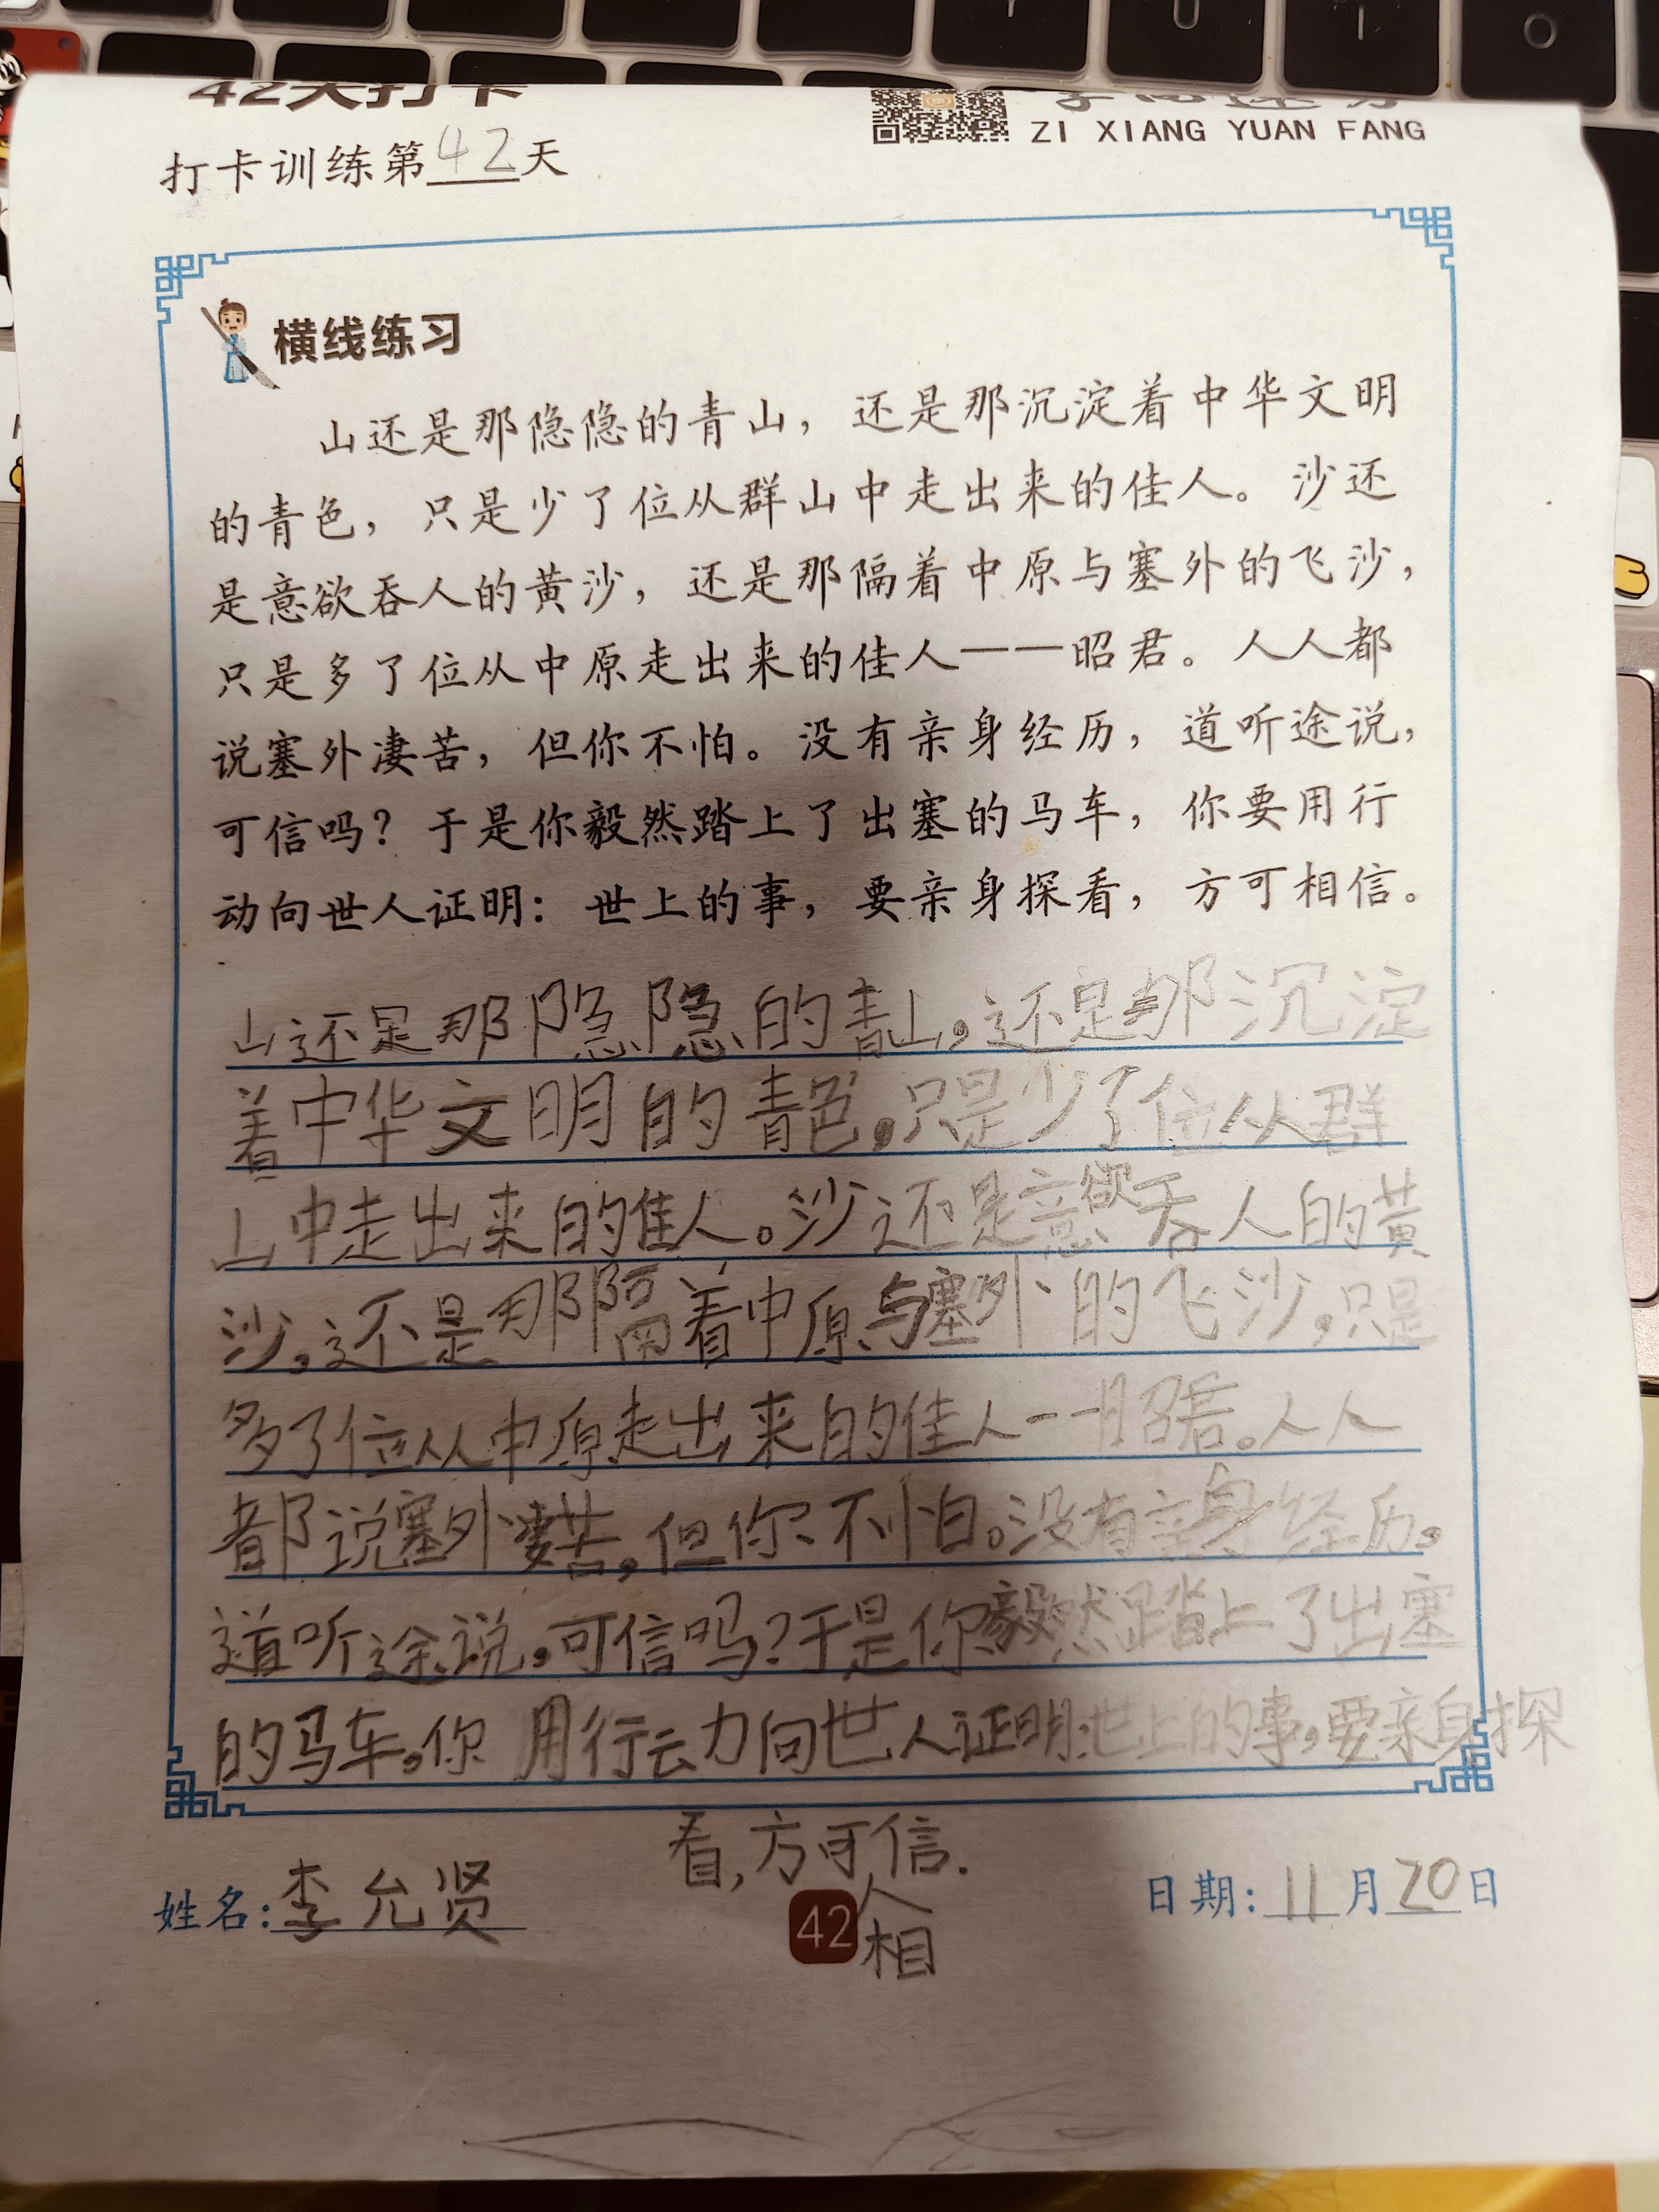 42天打卡
ZI XIANG YUAN FANG
打卡训练第42天
横线练习
山还是那隐隐的青山，还是那沉淀着中华文明
的青色，只是少了位从群山中走出来的佳人。沙还
是意欲吞人的黄沙，还是那隔着中原与塞外的飞沙，
只是多了位从中原走出来的佳人——昭君。人人都
说塞外凄苦，但你不怕。没有亲身经历，道听途说，
可信吗？于是你毅然踏上了出塞的马车，你要用行
动向世人证明：世上的事，要亲身探看，方可相信。
山还是那隐隐的青山，还是那沉淀
着中华文明的青色，只是少了位从群
山中走出来的佳人。沙还是意欲吞人的黄
沙，还是那隔着中原与塞外的飞沙，只是
多了位从中原走出来的佳人——昭君。人人
都说塞外凄苦，但你不怕。没有亲身经历，
道听途说，可信吗？于是你毅然踏上了出塞
的马车，你用行动向世人证明：世上的事，要亲身探
看，方可信.
相
姓名：李允贤
42
日期：11月20日